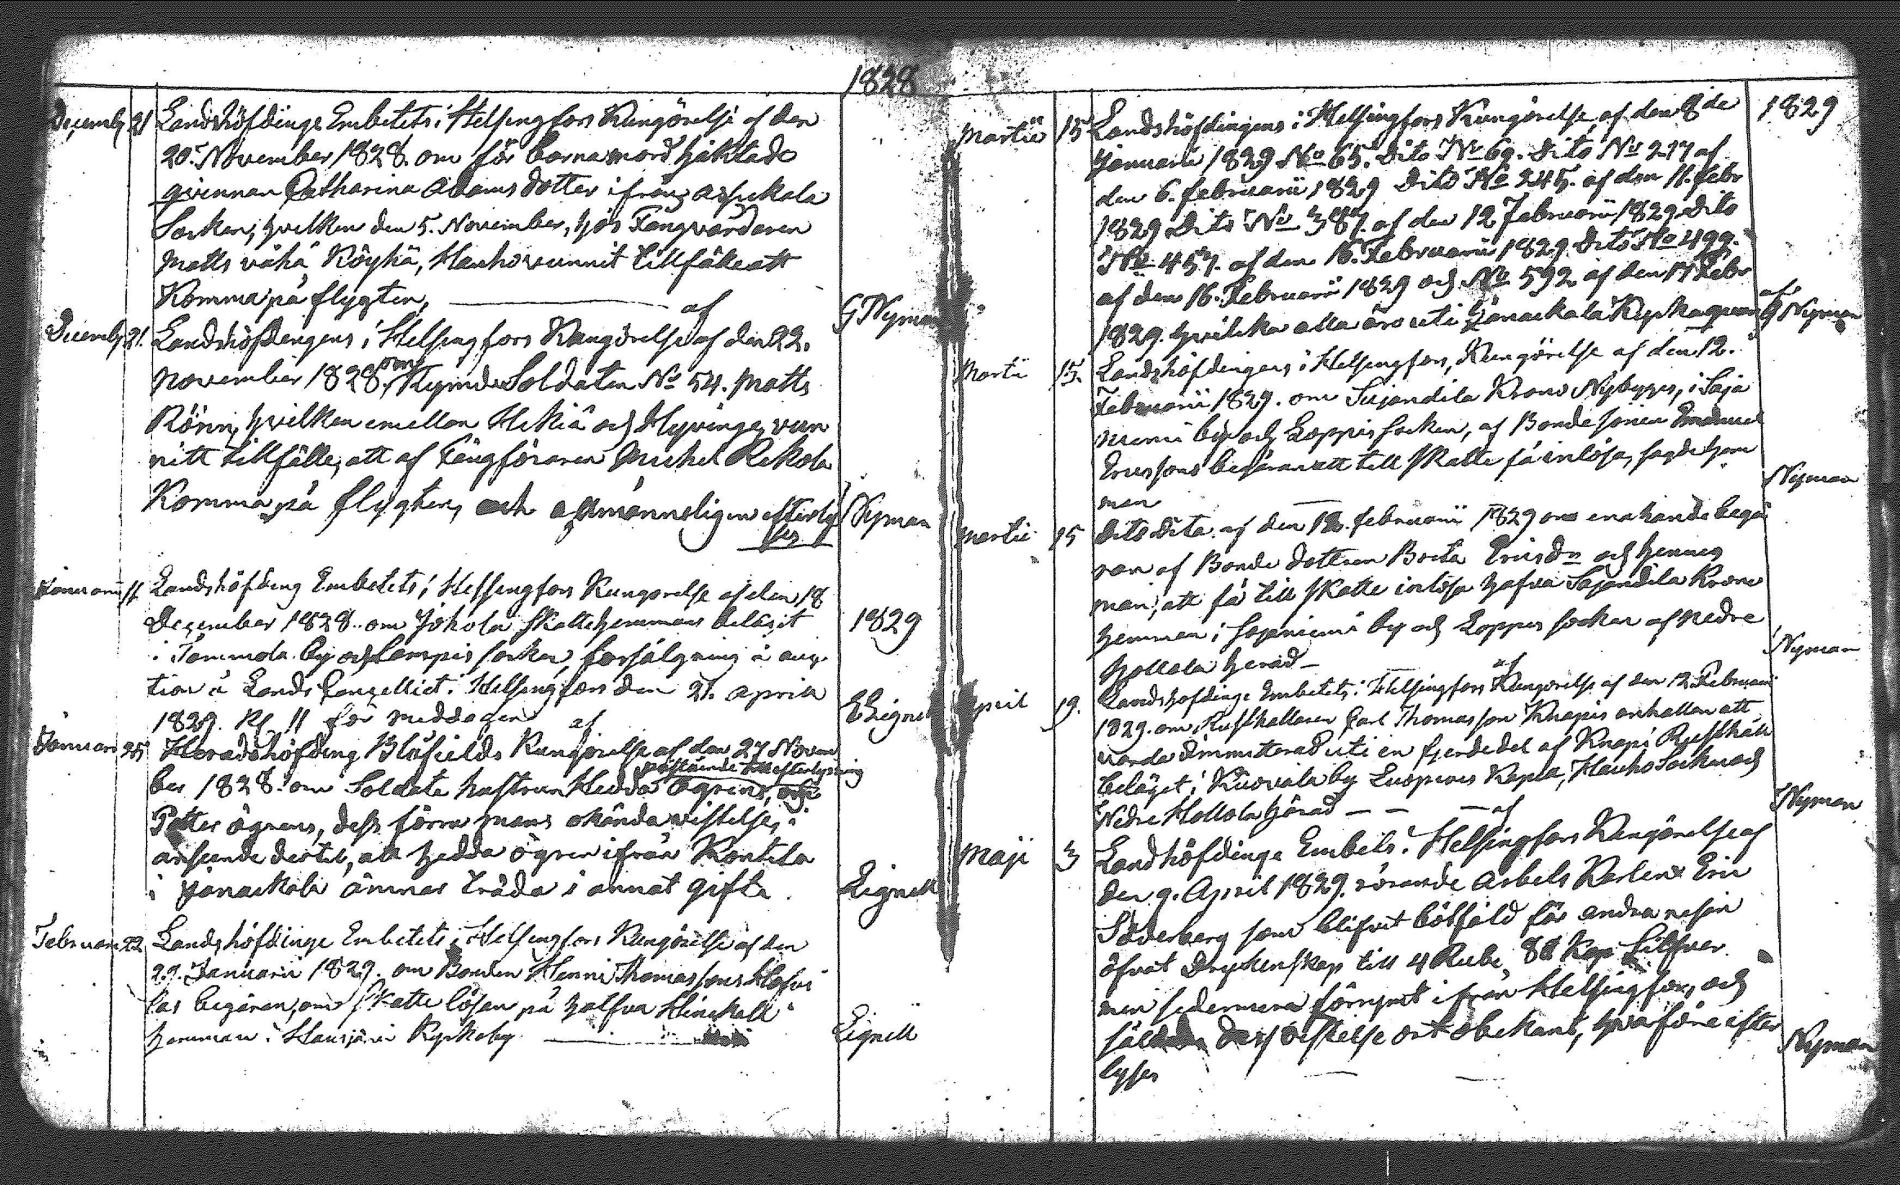 1828
Decemb. 21 Landshöfdinge Embetets i Helsingfors Kungörelse af den
20. November 1828. om för barnamord häktade
qvinnan Catharina Adamsdotter ifrån Aspikala
Socken, hvilken den 5. November, hos Fångvårdaren
Matts vähä Köyhä, Hauho vunnit tillfälle att
Komma på flygten, af G Nyman
Decemb. 21. Landshöfdingens i Helsingfors Kungörelse af den 22.
November 1828. om Rymde Soldaten No 54. Matts
Rönn, hvilken emellan Hekiä och Hyvinge, vun
nitt tillfälle, att af Fångföraren Michel Rekola
Komma på flygten, och allmänneligen efterly
ses Nyman
Januarii 11 Landshöfding Embetets i Helsingfors Kungörelse af den 18
December 1828. om Johola Skattehemmans belägit 1829
i Tammola by och Lampis socken, försälgning å auc
tion å Lands Cancelliet i Helsingfors den 21. April
1829. Kl. 11 för middagen af E Eignell
Januari 25 Häradshöfding Blåfields Kungörelse af den 27 Novem
ber 1828. om Soldats hustrun Hedda Ögrens, påstående till efterlysning
Petter Ögrens, dess förra mans okända vistelse, i
anseende dertil, att Hedda Ögren ifrån Kontila
i Janackala ämnar träda i annat gifte Eignell
Februari 22 Landshöfdinge Embetets i Helsingfors Kungörelse af den
29. Januarii 1829. om Bonden Henric Thomassons
begäran, om skatte lösen på halfva
hemman i Hausjärvi Kyrkoby Eignell
1829
Martii 15 Landshöfdingens i Helsingfors Kungörelse, af den 8de
Januarii 1829 No 65. Dito No 69. Dito No 217 af
den 6. februarii 1829 Dito No 345. af den 11. febr
1829 Dito No 387. af den 12 Februarii 1829 Dito
No 457. af den 16. Februarii 1829. Dito No 499.
af den 16. Februarii 1829 och No 592 af den 17 Febr
1829. hvilka alla äro uti Janackala Kyrka af G Nyman
Martii 15. Landshöfdingens i Helsingfors, Kungörelse af den 12.
Februarii 1829. om Sajandila Krono Nybygges, i Saja
niemi by och Loppis socken, af Bonde sonen Emanuel
Ericssons begäran att till skatte få inlösa, sagde hem
man Nyman
Martii 15 Dito Dito af den 12. februarii 1829 om enahanda begä
ran af Bonde dottren Brita Ericsdr och hennes
man, att få till skatte inlösa halfva Sajandila Krono
hemman i Sajaniemi by och Loppis socken af Nedre
Hollola härad Nyman
April 19. Landshöfdinge Embetets i Helsingfors Kungörelse af den 12. Februarii
1829. om Rusthållaren Carl Thomasson Knapis anhållan att
varda immitterad uti en fjerdedel af Knapi Rusthåll
beläget i Kuoriala by Luopiois Kapell, Hauho Socken och
Nedre Hollola härad af Nyman
Maji 3 Landshöfdinge Embets i Helsingfors Kungörelse af
den 9. April 1829. rörande Arbets Karlen Eric
Söderberg som blifvit bötfäld för andra resan
öfvat Dryckenskap till 4 Rub. 80 Kop. Silfver
men sedermera förrymt ifrån Helsingfors, och
dess vistelse ort obekant, hvarföre efter
lyses Nyman